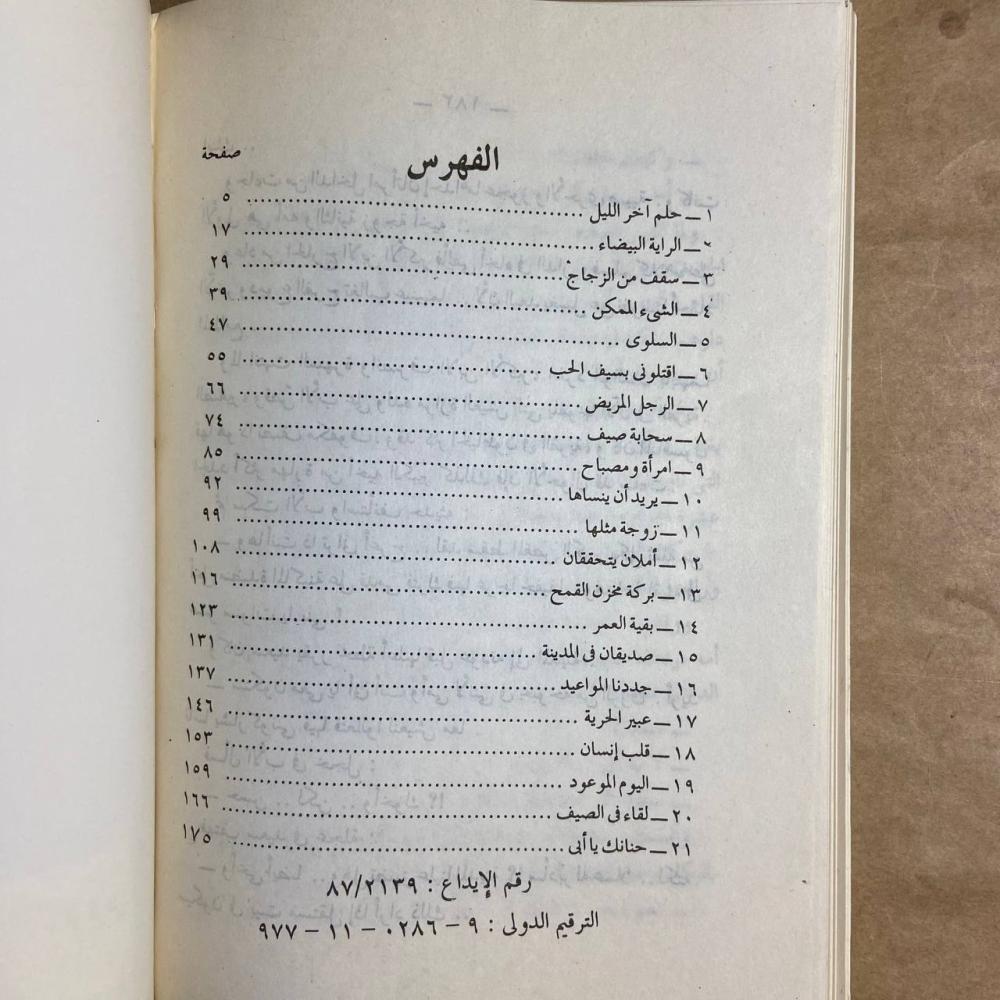 الفهرس
صفحة
١ ــ حلم آخر الليل ........ ٥
٢ ــ الراية البيضاء ........ ١٧
٣ ــ سقف من الزجاج ........ ٢٩
٤ ــ الشىء الممكن ........ ٣٩
٥ ــ السلوى ........ ٤٧
٦ ــ اقتلونى بسيف الحب ........ ٥٥
٧ ــ الرجل المريض ........ ٦٦
٨ ــ سحابة صيف ........ ٧٤
٩ ــ امرأة ومصباح ........ ٨٥
١٠ ــ يريد أن ينساها ........ ٩٢
١١ ــ زوجة مثلها ........ ٩٩
١٢ ــ أملان يتحققان ........ ١٠٨
١٣ ــ بركة مخزن القمح ........ ١١٦
١٤ ــ بقية العمر ........ ١٢٣
١٥ ــ صديقان فى المدينة ........ ١٣١
١٦ ــ جددنا المواعيد ........ ١٣٧
١٧ ــ عبير الحرية ........ ١٤٦
١٨ ــ قلب إنسان ........ ١٥٣
١٩ ــ اليوم الموعود ........ ١٥٩
٢٠ ــ لقاء فى الصيف ........ ١٦٦
٢١ ــ حنانك يا أبى ........ ١٧٥
رقم الإيداع : ٨٧/٢١٣٩
الترقيم الدولى : ٩ – ٠٢٨٦ – ١١ – ٩٧٧